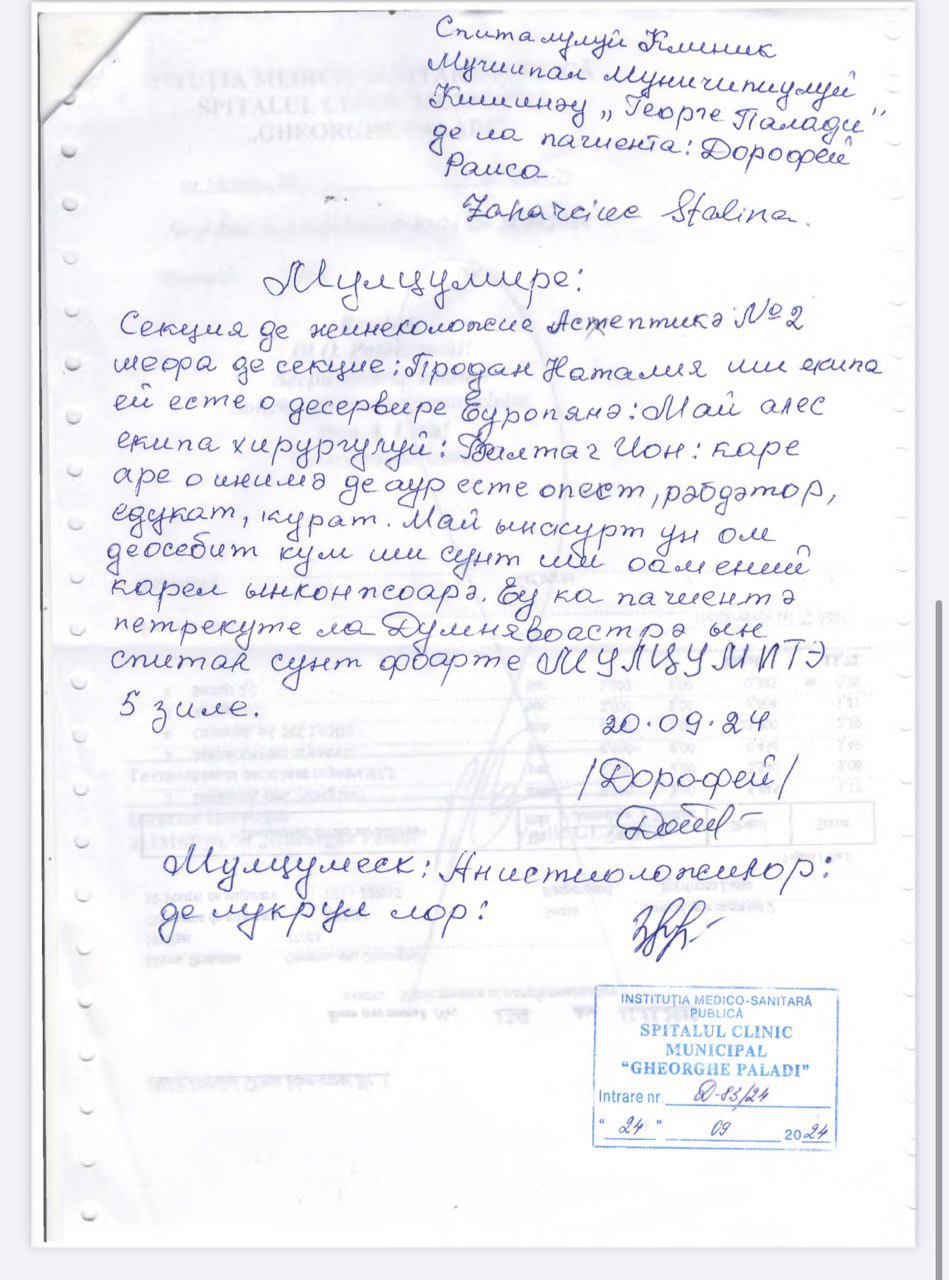 Спиталулуй Клиник
Мучиипал Муничипиулуй
Кишинэу „Георге Палади"
де ла пачиента: Дорофей
Раиса
Zaharciuc Stalina.
Мулцумире:
Секция де жинеколожие Астептикэ №2
шефа де секцие: Продан Наталия ши екипа
ей есте о десервире Еуропянэ: Май алес
екипа хирургулуй: Балтаг Ион: каре
аре о инимэ де аур есте онест, рэбдэтор,
едукат, курат. Май ынскурт ун ом
деосебит кум ши сунт ши оамений
карел ынконжоарэ. Еу ка пачиентэ
петрекуте ла Думнявоастрэ ын
спитал сунт фоарте МУЛЦУМИТЭ
5 зиле.
20.09.24
/Дорофей/
Мулцумеск: Анистиоложилор:
де лукрул лор:
INSTITUȚIA MEDICO-SANITARĂ
PUBLICĂ
SPITALUL CLINIC
MUNICIPAL
"GHEORGHE PALADI"
Intrare nr. D-83/24
"24" 09 2024